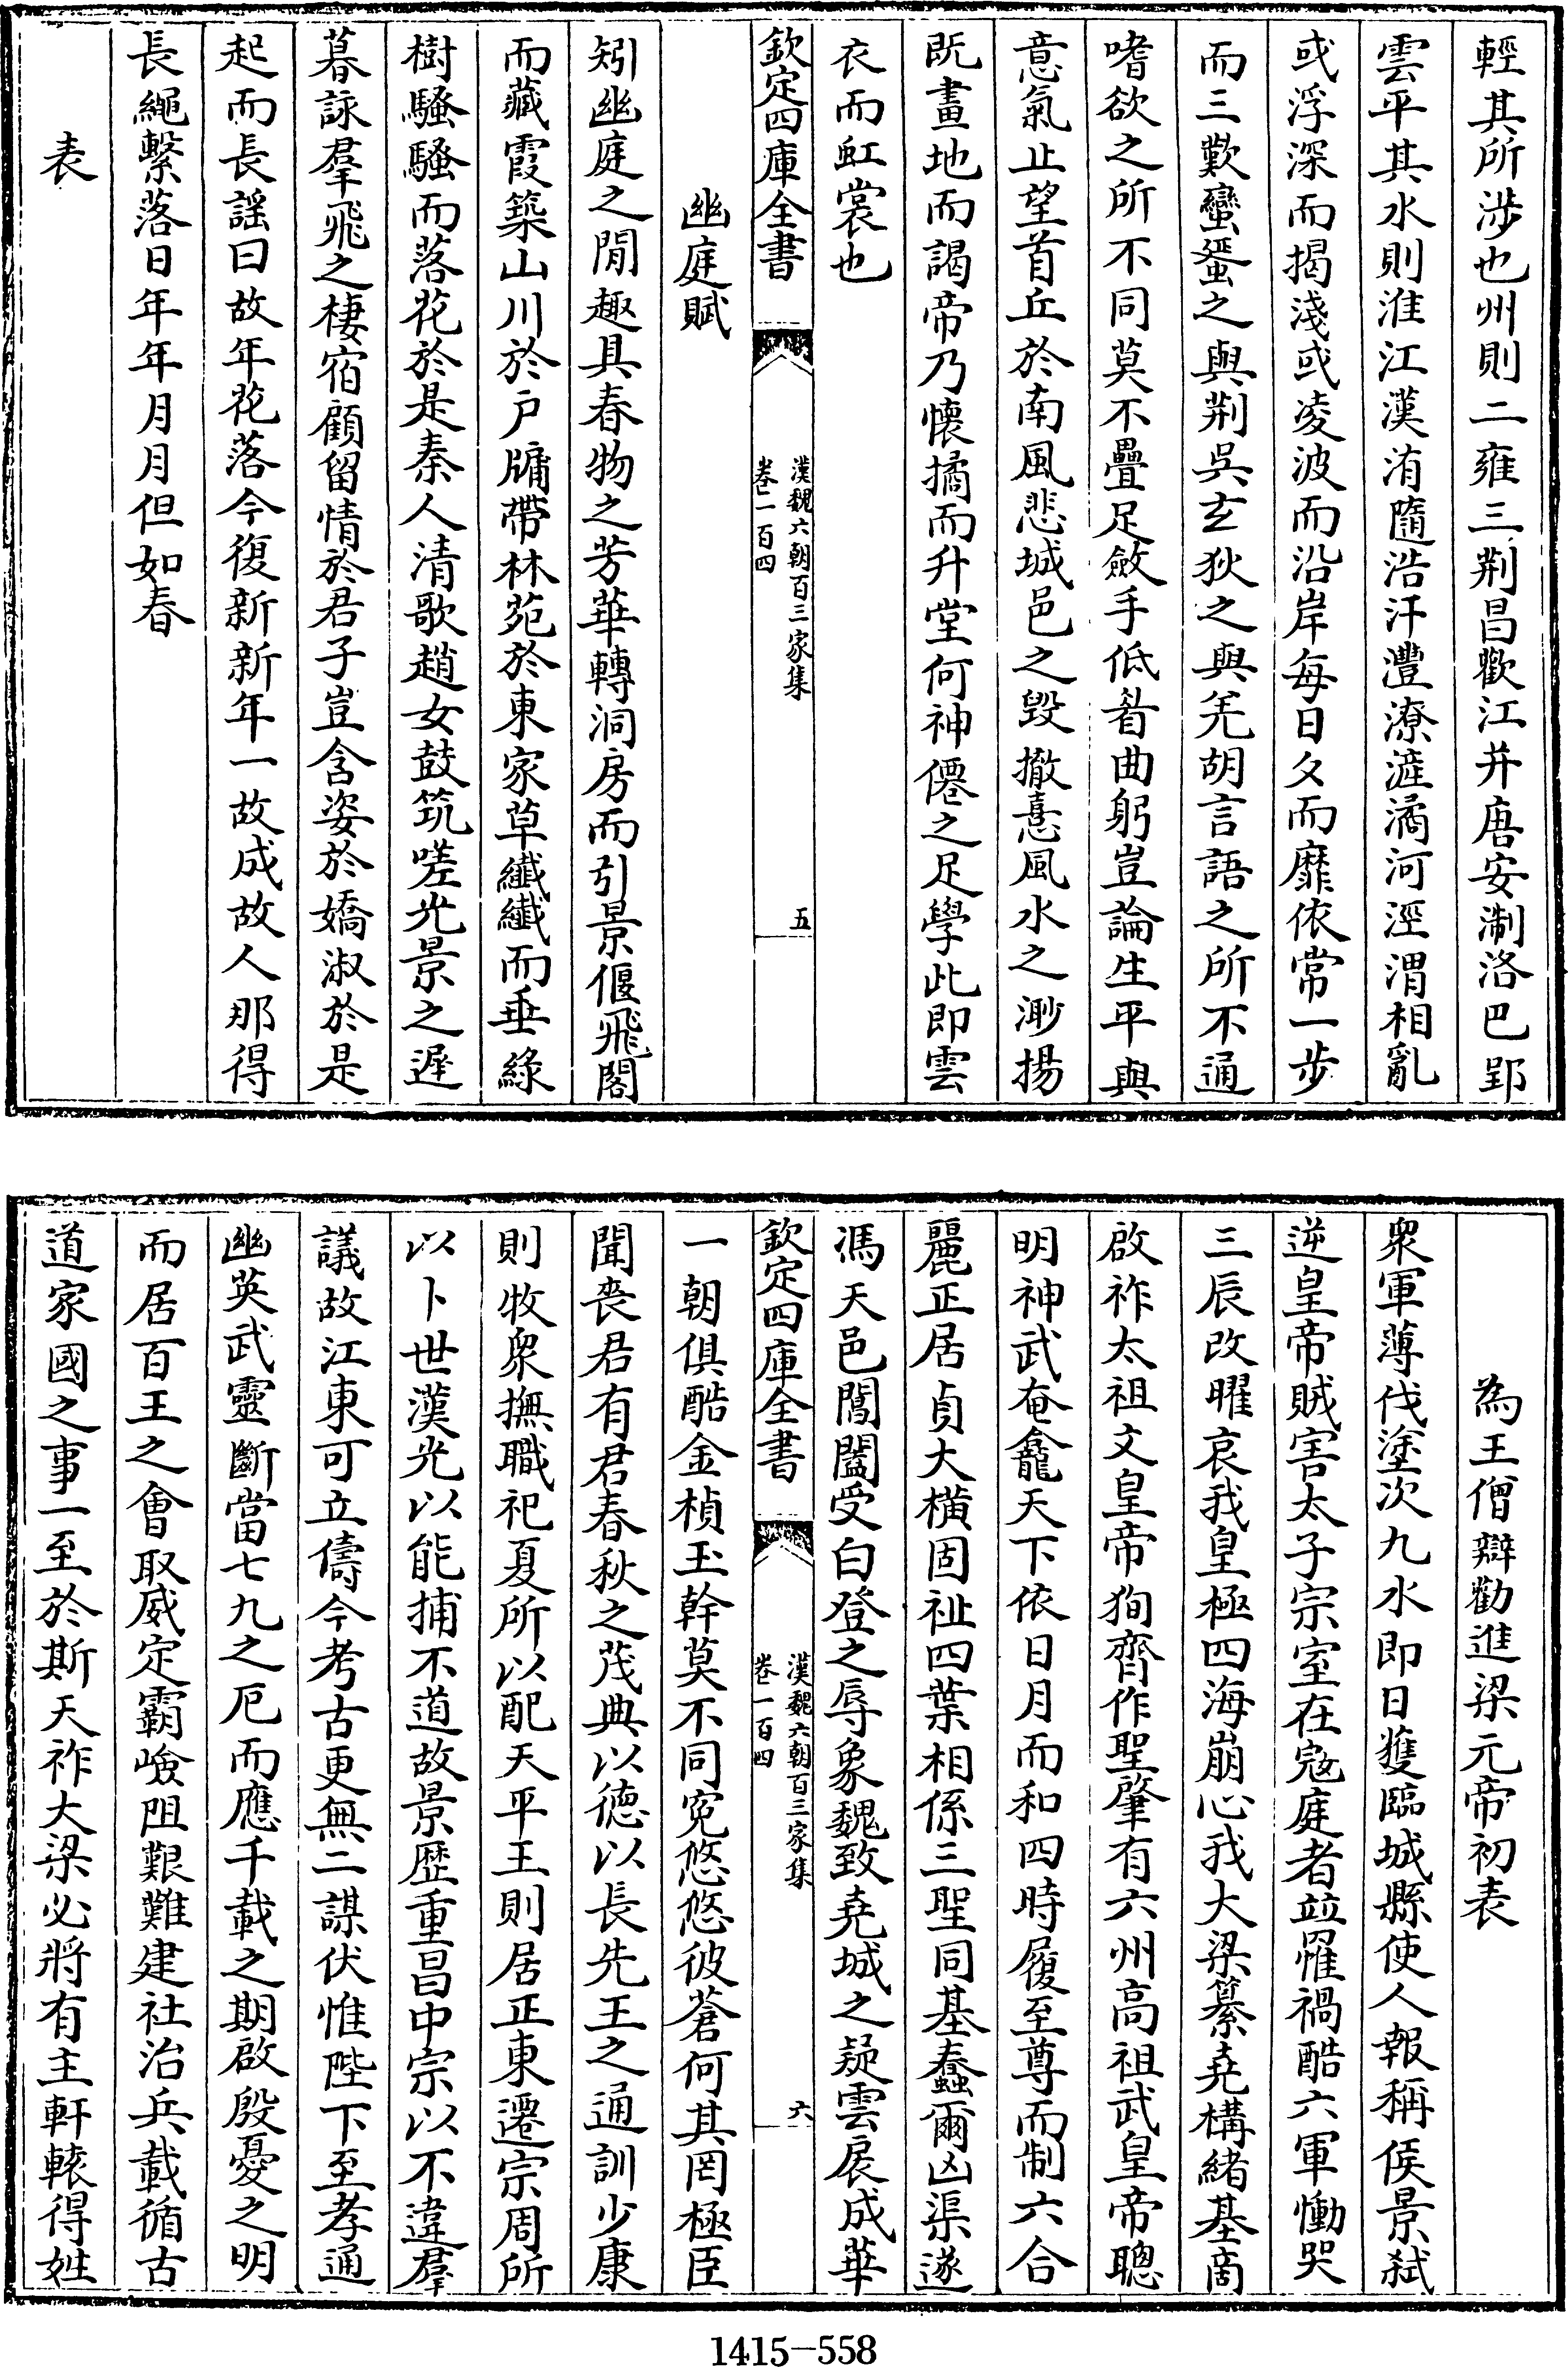 輕其所涉也州則二雍三荆昌歡江并唐安淛洛巴郢
雲平其水則淮江漢洧隨浩汗灃潦滻潏河涇渭相亂
或浮深而揭淺或凌波而沿岸每日夕而靡依常一步
而三歎蠻蜑之與荆吳玄狄之與羌胡言語之所不通
嗜欲之所不同莫不疊足斂手低眉曲躬豈論生平與
意氣止望首丘於南風悲城邑之毀撤憙風水之渺揚
既畫地而謁帝乃懷橘而升堂何神僊之足學此即雲
衣而虹裳也
欽定四庫全書
漢魏六朝百三家集
卷一百四
五
幽庭賦
矧幽庭之閒趣具春物之芳華轉洞房而引景偃飛閣
而藏霞築山川於戶牖帶林苑於東家草纖纖而垂綠
樹騷騷而落花於是秦人清歌趙女鼓筑嗟光景之遲
暮詠羣飛之棲宿顧留情於君子豈含姿於嬌淑於是
起而長謡曰故年花落今復新新年一故成故人那得
長繩繫落日年年月月但如春
表
為王僧辯勸進梁元帝初表
衆軍薄伐塗次九水即日獲臨城縣使人報稱侯景弑
逆皇帝賊害太子宗室在寇庭者竝罹禍酷六軍慟哭
三辰改曜哀我皇極四海崩心我大梁纂堯構緒基商
啟祚太祖文皇帝狥齊作聖肇有六州高祖武皇帝聰
明神武奄龕天下依日月而和四時履至尊而制六合
麗正居貞大横固祉四葉相係三聖同基蠢爾凶渠遂
馮天邑閶闔受白登之辱象魏致堯城之疑雲扆成華
欽定四庫全書
漢魏六朝百三家集
卷一百四
六
一朝俱酷金楨玉幹莫不同寃悠悠彼蒼何其罔極臣
聞喪君有君春秋之茂典以德以長先王之通訓少康
則牧衆撫職祀夏所以配天平王則居正東遷宗周所
以卜世漢光以能捕不道故景歷重昌中宗以不違羣
議故江東可立儔今考古更無二謀伏惟陛下至孝通
幽英武靈斷當七九之厄而應千載之期啟殷憂之明
而居百王之會取威定霸嶮阻艱難建社治兵載循古
道家國之事一至於斯天祚大梁必將有主軒轅得姓
1415-558